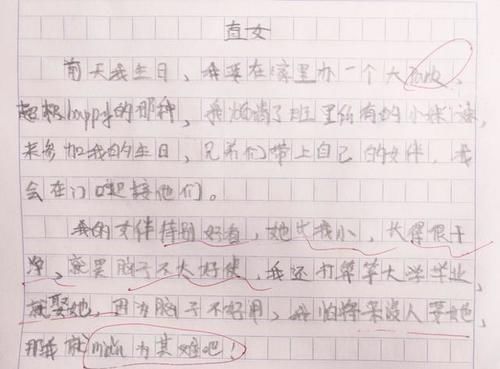 直女
前天我生日，我要在家里办一个大party，
超极happy的那种，我邀请了班里所有的小
来参加我的生日，兄弟们带上自己的女伴，我
会在门口迎接他们。
我的女伴特别好看，她比我小，长得很干
净，就是脑子不太好使，我还打算等大学毕业，
就娶她，因为脑子不好用，我怕将来没人要她，
那我就mian为其难吧！